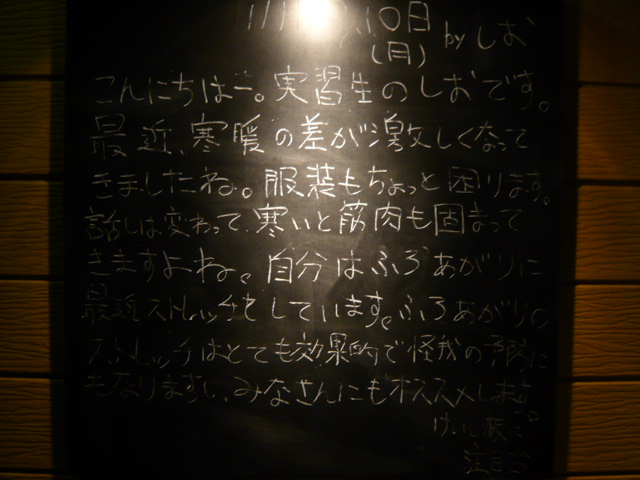 11月 10日
(月) by しお
こんにちはー。実習生のしおです。
最近、寒暖の差が激しくなって
きましたね。服装もちょっと困ります。
話しは変わって、寒いと筋肉も固まって
きますよね。自分はふろあがりに
最近ストレッチをしています。ふろあがりの
ストレッチはとても効果的で怪我の予防に
もなりますし、みなさんにもオススメします